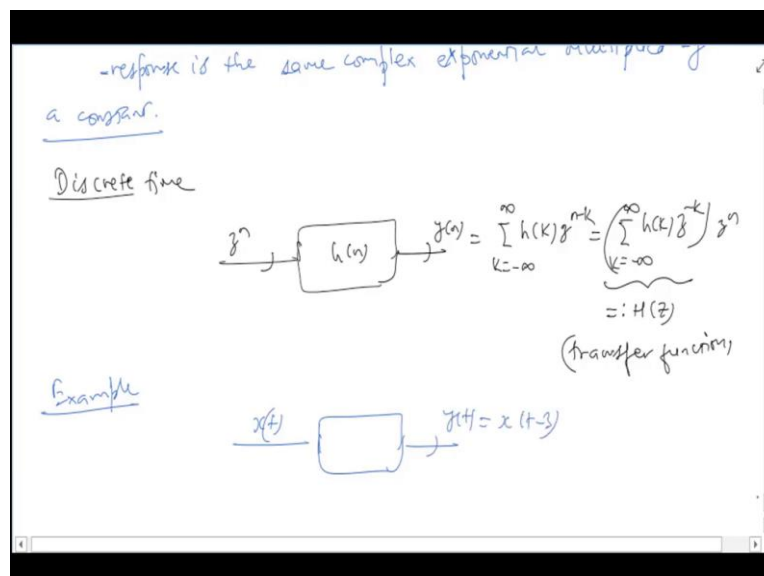 -response is the same complex exponential multiplied by
a constant.
Discrete time
z^n h(n) y(n) = ∑_{k=-∞}^{∞} h(k) z^{n-k} = (∑_{k=-∞}^{∞} h(k) z^{-k}) z^n
=: H(z)
(transfer function,
Example
x(t) y(t) = x(t-3)